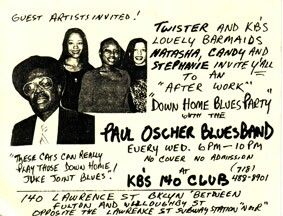 GUEST ARTISTS INVITED!
TWISTER AND KB'S
LOVELY BARMAIDS
NATASHA, CANDY AND
STEPHANIE INVITE Y'ALL
TO AN
"AFTER WORK"
"DOWN HOME BLUES PARTY"
WITH THE
PAUL OSCHER BLUES BAND
EVERY WED. 6PM-10PM
NO COVER NO ADMISSION
AT
KB'S 140 CLUB
(718)
"THESE CATS CAN REALLY
PLAY THOSE DOWN HOME/
JUKE JOINT BLUES."
140 LAWRENCE ST. BKLYN BETWEEN
FULTON AND WILLOUGHBY ST
OPPOSITE THE LAWRENCE ST SUBWAY STATION "N or R"